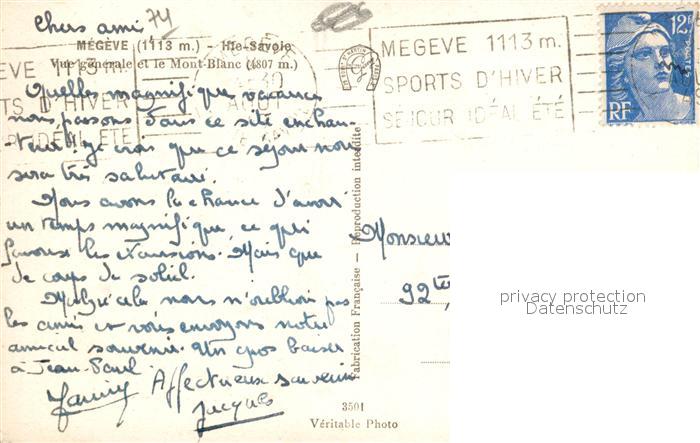 Chers amis 74
MÉGÈVE (1113 m.) — Hte-Savoie
Vue générale et le Mont-Blanc (4807 m.)
MEGEVE 1113 m.
SPORTS D'HIVER
SÉJOUR IDÉAL ÉTÉ
EVE 1113 m.
RTS D'HIVER
R IDÉAL ÉTÉ
AOUT
12F
RF
Quelles magnifiques vacances
nous passons dans ce site enchan-
teur. Je crois que ce séjour nous
sera très salutaire.
Nous avons la chance d'avoir
un temps magnifique ce qui
favorise les excursions. Mais que
de coups de soleil.
Malgré cela nous n'oublions pas
les amis et vous envoyons notre
amical souvenir. Un gros baiser
à Jean-Paul.
Affectueux souvenir
Jacques
Monsieur
92ter
Fabrication Française — Reproduction interdite
privacy protection
Datenschutz
3501
Véritable Photo